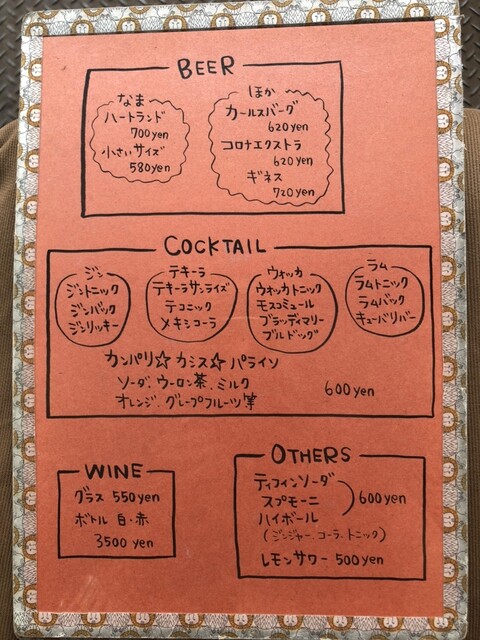 BEER
なま
ハートランド
700yen
小さいサイズ
580yen
ほか
カールスバーグ
620yen
コロナエクストラ
620yen
ギネス
720yen
COCKTAIL
ジン
ジントニック
ジンバック
ジンリッキー
テキーラ
テキーラサンライズ
テコニック
メキシコーラ
ウォッカ
ウォッカトニック
モスコミュール
ブラッディマリー
ブルドッグ
ラム
ラムトニック
ラムバック
キューバリバー
カンパリ☆ カシス☆ パライソ
ソーダ、ウーロン茶、ミルク
オレンジ、グレープフルーツ等
600yen
WINE
グラス 550yen
ボトル 白・赤
3500 yen
OTHERS
ティフィンソーダ
スプモーニ
600yen
ハイボール
(ジンジャー、コーラ、トニック)
レモンサワー 500yen